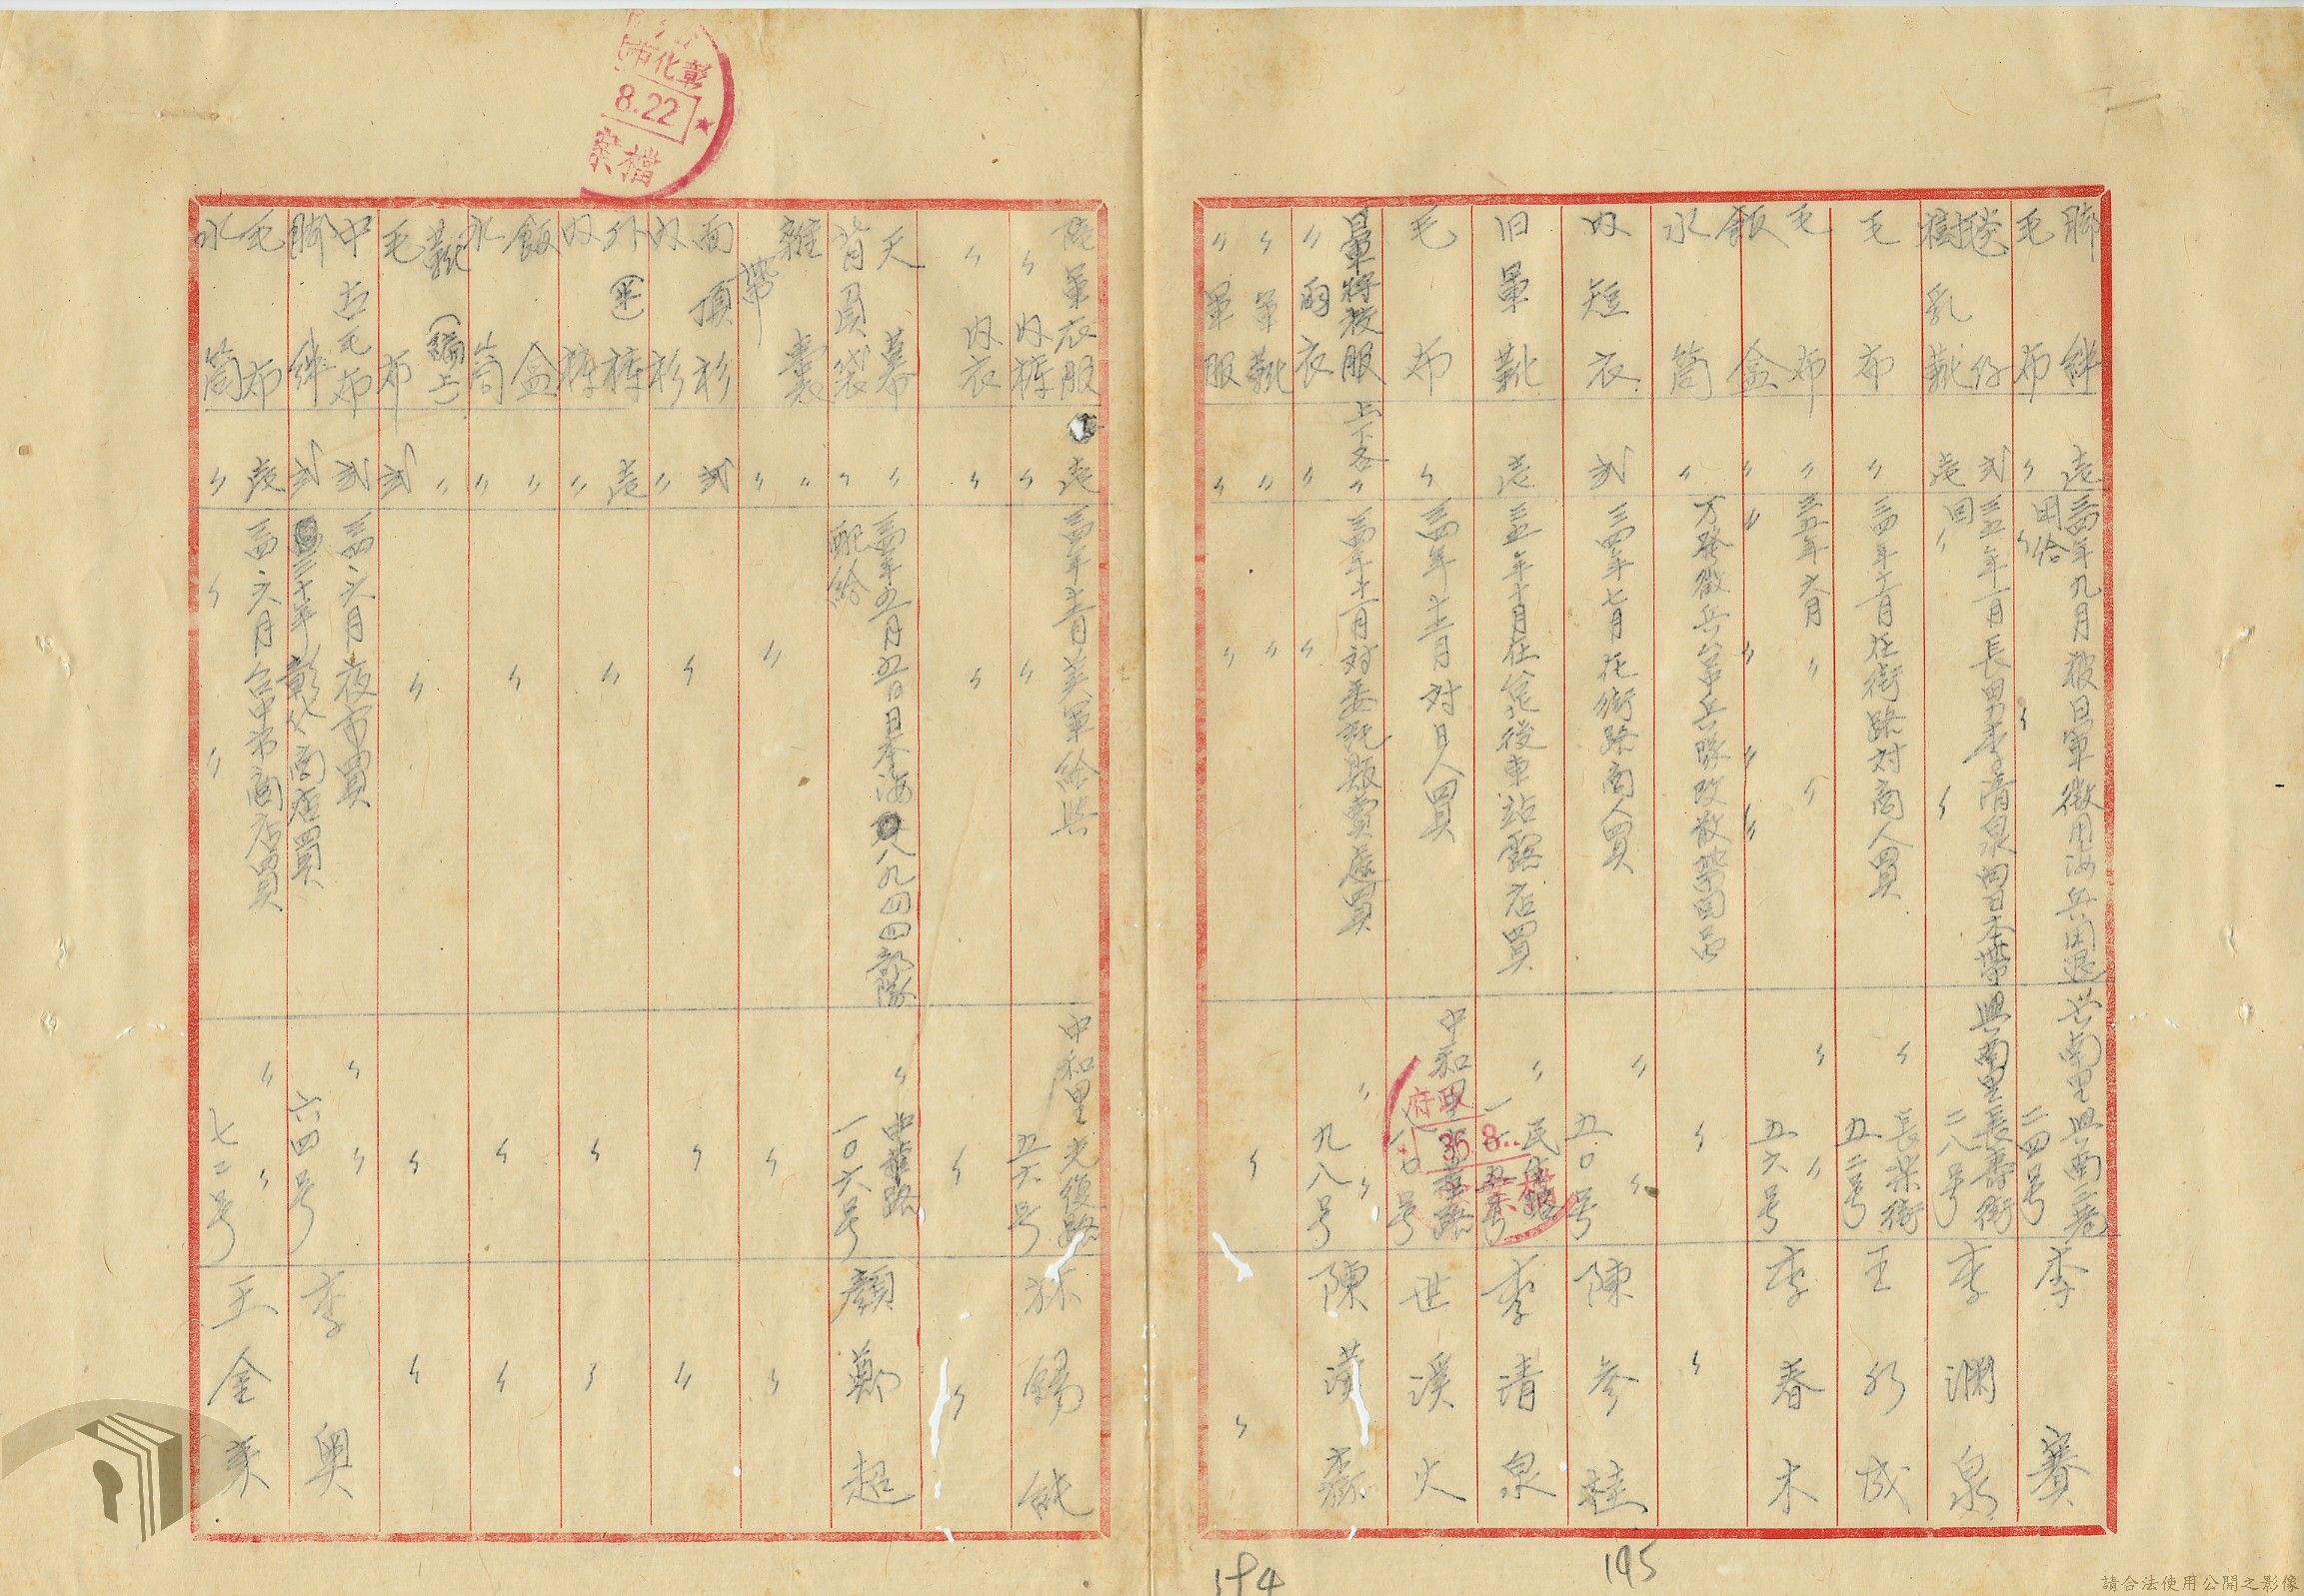 脚絆 壱 三四年九月被日軍徴用海兵用退 共南里興南三巷二四号 李賽
毛布 〃 用給
毯仔 弍 三五年一月長男李清泉由日本帶回 興南里長壽街二八号 李淵泉
樹乳靴 壱 〃
毛布 〃 三四年十二月在街路对商人買 〃 長樂街五二号 王水城
毛布 〃 三五年六月 〃 〃 〃 五六号 李春木
飯盒 〃 〃 〃 〃 〃
水筒 〃 万發徴兵台中兵隊改散帶回品 〃 〃
奴短衣 弍 三四年七月在街路商人買 〃 〃 五〇号 陳参桂
旧軍靴 壱 三五年十月在台北後車站露店買 〃 民生路一一五号 李清泉
毛布 〃 三四年十二月对日人買 中和里 一〇号 世溪火
日軍将校服 上下各〃 三四年十一月对委託販賣處買 〃 〃 九八号 陳漢森
〃雨衣 〃 〃
〃軍靴 〃 〃
〃軍服 〃 〃 〃 〃
陸軍衣服 壱 三四年十二月美軍給与 中和里光復路五六号 錫
〃奴褲 〃 〃
〃奴衣 〃 〃 〃 〃
天幕 〃 三四年五月五日日本海 八九四四部隊 〃 中華路一〇六号 顏鄭超
背負袋 〃 配給
雜囊 〃
帶 〃 〃 〃 〃
面頂衫 弍 〃 〃 〃
奴衫 〃
外(坐)褲 壱 〃 〃 〃
奴褲 〃
飯盒 〃 〃 〃 〃
水筒 〃
靴(編上) 〃
毛布 弍 〃 〃 〃
中古毛布 弍 三四、六月夜市買 〃 〃 六四号 李奧
脚絆 弍 三十年彰化商店買
毛布 壱 三四、六月台中市商店買 〃 〃 七二号 王金美
水筒 〃 〃 〃
彰化市
8.22
檔案
府政
36.8.
194
195
請合法使用公開之影像